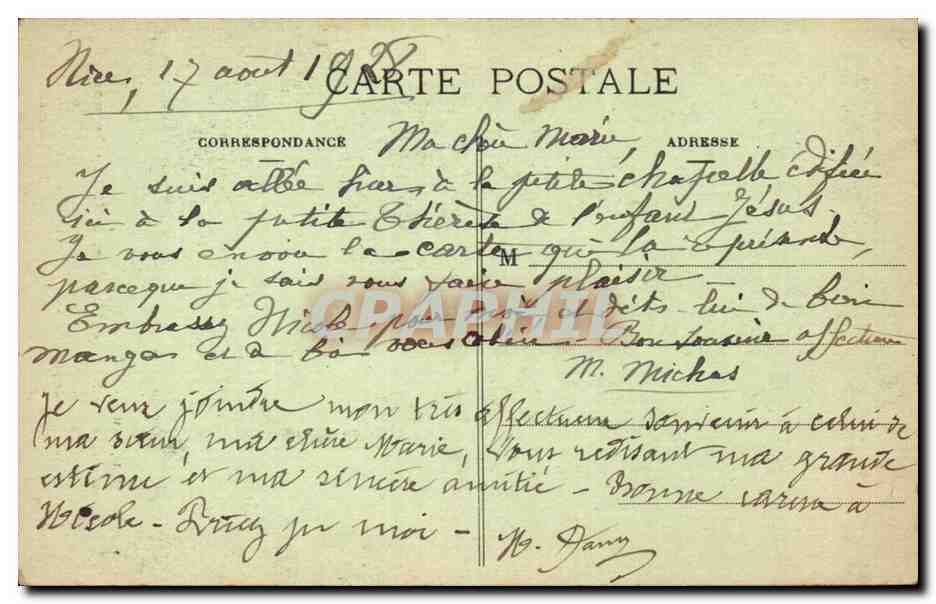 Nice, 17 août 1928
CARTE POSTALE
CORRESPONDANCE
ADRESSE
Ma chère Marie,
Je suis allée hier, à la petite chapelle édifiée
ici à la petite Thérèse de l'enfant Jésus.
Je vous envoie la carte qui la représente,
M
parceque je sais vous faire plaisir
CPAPHIL
Embrassez Nicole pour moi et dites lui de bien
manger et à vous Bon souvenir affectueux
M. Michas
Je veux joindre mon très affectueux souvenir à celui de
ma sœur, ma chère Marie, vous redisant ma grande
estime et ma sincère amitié - Bonne caresse à
Nicole - Priez pr moi -